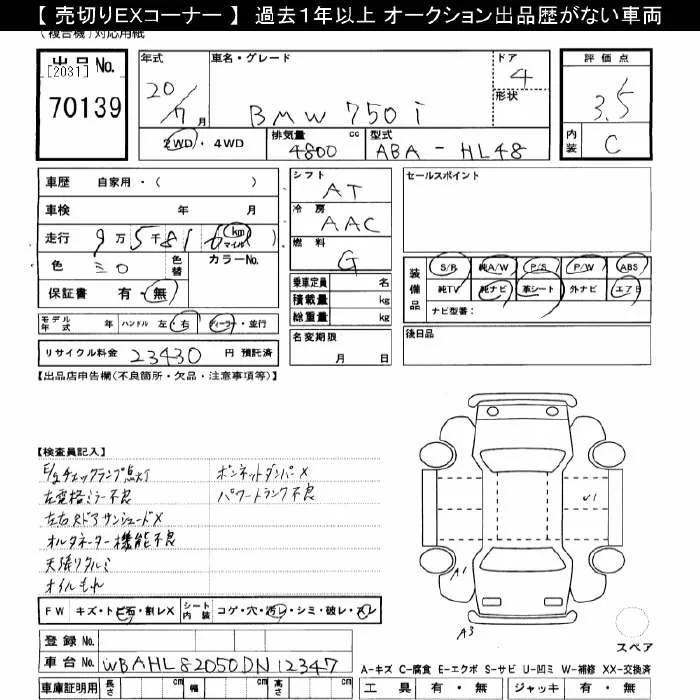 【 売切りEXコーナー 】 過去１年以上 オークション出品歴がない車両
(複合機)対応用紙
出品 No.
[2031]
70139
年式
20/7月
車名・グレード
BMW 750i
ドア
4
形状
評価点
3.5
内装
C
2WD・4WD
排気量 cc
4800
型式
ABA-HL48
車歴 自家用・( )
車検 年 月
走行 9万5千816 (km マイル)
色
色替
カラーNo.
保証書 有・無
モデル年式 年 ハンドル 左・右 ディーラー・並行
リサイクル料金 23430 円 預託済
シフト
AT
冷房
AAC
燃料
G
乗車定員 名
積載量 kg
総重量 kg
名変期限
月 日
セールスポイント
装備品
S/R 純A/W P/S P/W ABS
純TV 純ナビ 革シート 外ナビ エアB
ナビ型番：
後日品
【出品店申告欄(不良箇所・欠品・注意事項等)】
【検査員記入】
E/gチェックランプ点灯
左電格ミラー不良
左右Rドアサンシェード×
オルタネーター機能不良
天張りタルミ
オイルもれ
ボンネットダンパー×
パワートランク不良
U1
A1
A3
スペア
FW キズ・トビ石・割レX
シート内装 コゲ・穴・汚レ・シミ・破レ・スレ
登録 No.
車台 No. WBAHL82050DN12347
車庫証明用 長さ cm 幅 cm 高さ cm
A-キズ C-腐食 E-エクボ S-サビ U-凹ミ W-補修 XX-交換済
工具 有・無 ジャッキ 有・無